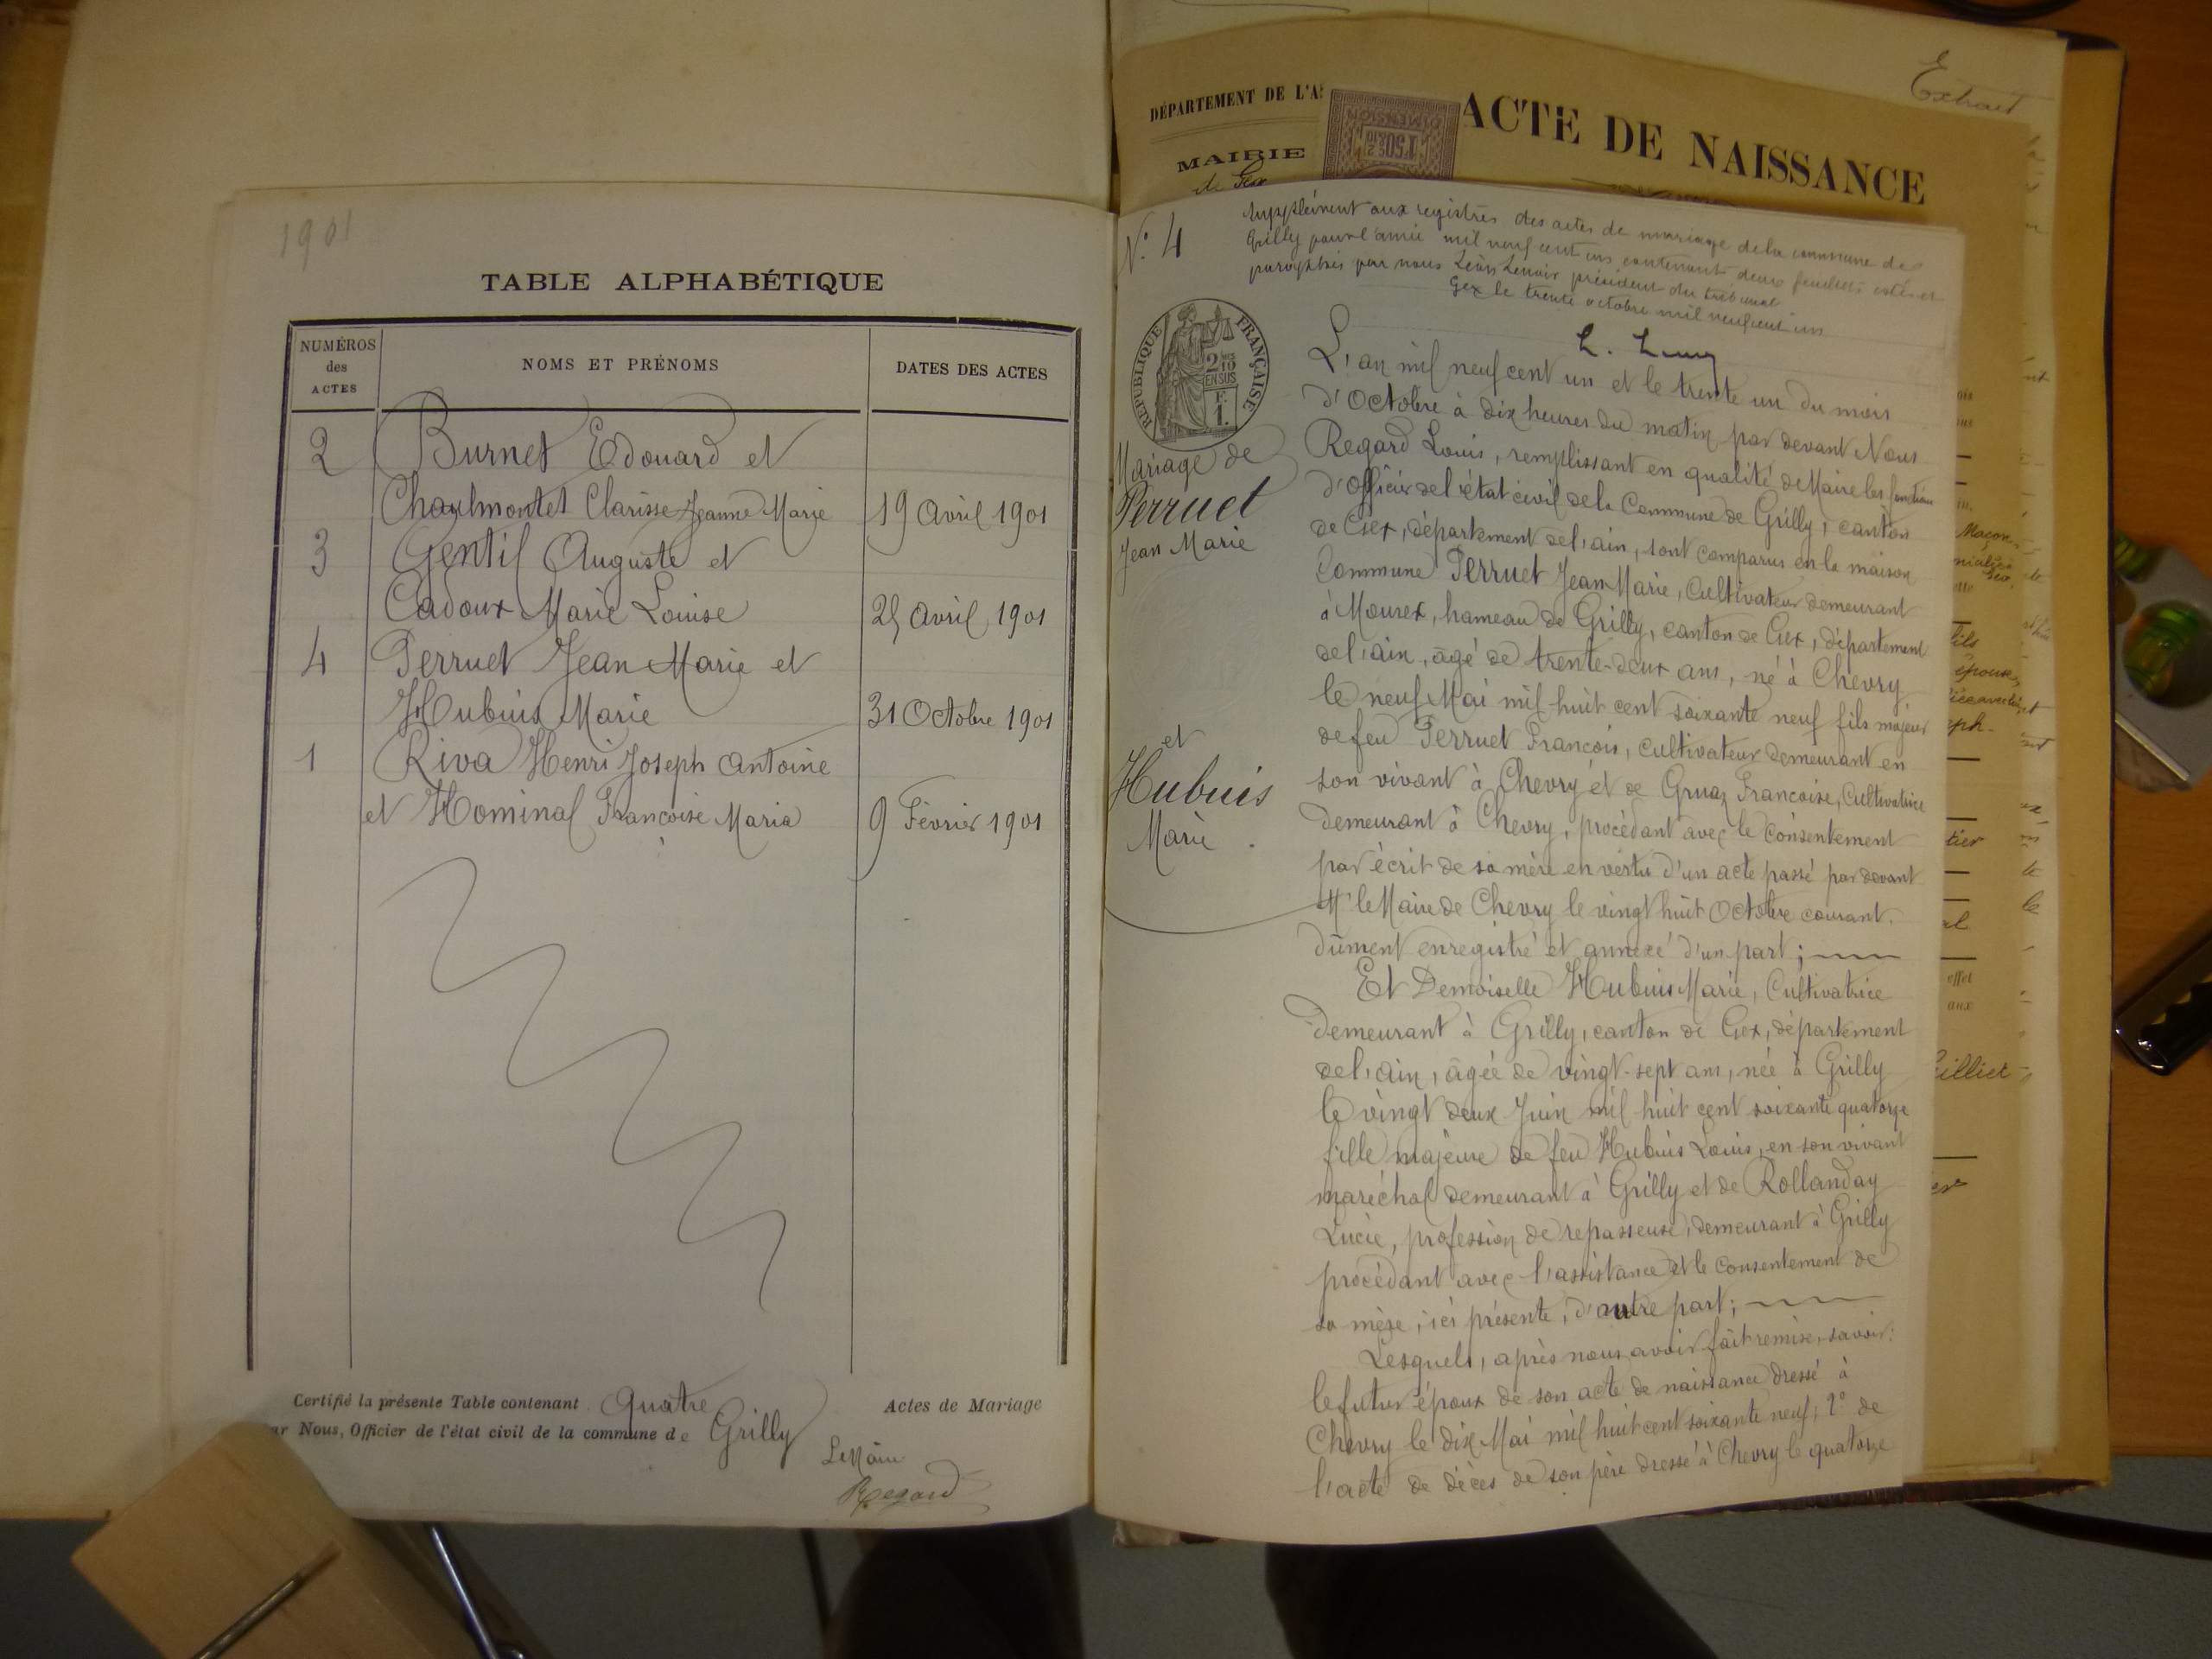 1901
TABLE ALPHABÉTIQUE
NUMÉROS
des
ACTES
NOMS ET PRÉNOMS
DATES DES ACTES
2 Burnet Edouard et
Charlmontet Clarisse Jeanne Marie 19 Avril 1901
3 Gentil Auguste et
Cadoux Marie Louise 25 Avril 1901
4 Perruet Jean Marie et
Hubuis Marie 31 Octobre 1901
1 Riva Henri Joseph Antoine
et Hominal Francoise Maria 9 Février 1901
Certifié la présente Table contenant Quatre Actes de Mariage
ar Nous, Officier de l'état civil de la commune de Grilly
Le Maire
Regard
Extrait
DÉPARTEMENT DE L'A
ACTE DE NAISSANCE
MAIRIE
de Gex
1F50c
DIMENSION
N° 4
Supplément aux registres des actes de mariage de la commune de
Grilly pour l'année mil neuf cent un contenant deux feuillets cotés et
paraphés par nous Léon Lenoir président du tribunal
Gex le trente octobre mil neuf cent un
RÉPUBLIQUE FRANÇAISE
2/10
EN SUS
F.
1.
Mariage de
Perruet
Jean Marie
et
Hubuis
Marie
L'an mil neuf cent un et le trente un du mois
d'Octobre à dix heures du matin par devant Nous
Regard Louis, remplissant en qualité de Maire les fonctions
d'officier de l'état civil de la Commune de Grilly, canton
de Gex, département de l'ain, sont comparus en la maison
Commune Perruet Jean Marie, Cultivateur demeurant
à Mourex, hameau de Grilly, canton de Gex, département
de l'ain, âgé de trente-deux ans, né à Chevry
le neuf Mai mil huit cent soixante neuf fils majeur
de feu Perruet Francois, cultivateur demeurant en
son vivant à Chevry et de Gruaz Francoise, Cultivatrice
demeurant à Chevry, procédant avec le consentement
par écrit de sa mère en vertu d'un acte passé par devant
Mr le Maire de Chevry le vingt huit Octobre courant.
dûment enregistré et annexé d'un part;
Et Demoiselle Hubuis Marie, Cultivatrice
demeurant à Grilly, canton de Gex, département
de l'ain, âgée de vingt-sept ans, née à Grilly
le vingt deux Juin mil huit cent soixante quatorze
fille majeure de feu Hubuis Louis, en son vivant
maréchal demeurant à Grilly et de Rollanday
Lucie, profession de repasseuse, demeurant à Grilly
procédant avec l'assistance et le consentement de
sa mère, ici présente, d'autre part;
Lesquels, après nous avoir fait remise, savoir:
le futur époux de son acte de naissance dressé à
Chevry le dix Mai mil huit cent soixante neuf; 2° de
l'acte de décès de son père dressé à Chevry le quatorze
Maçon
fils
épouse
eph-
tier
al
effet
aux
illiet